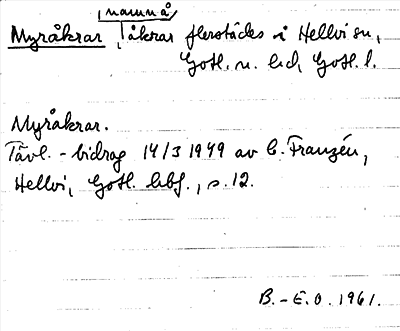 namn på
Myråkrar, åkrar flerstädes i Hellvi sn,
Gotl. n. hd, Gotl. l.
Myråkrar.
Tävl.-bidrag 14/3 1949 av C. Franzén,
Hellvi, Gotl. hbf., s. 12.
B.-E.O. 1961.